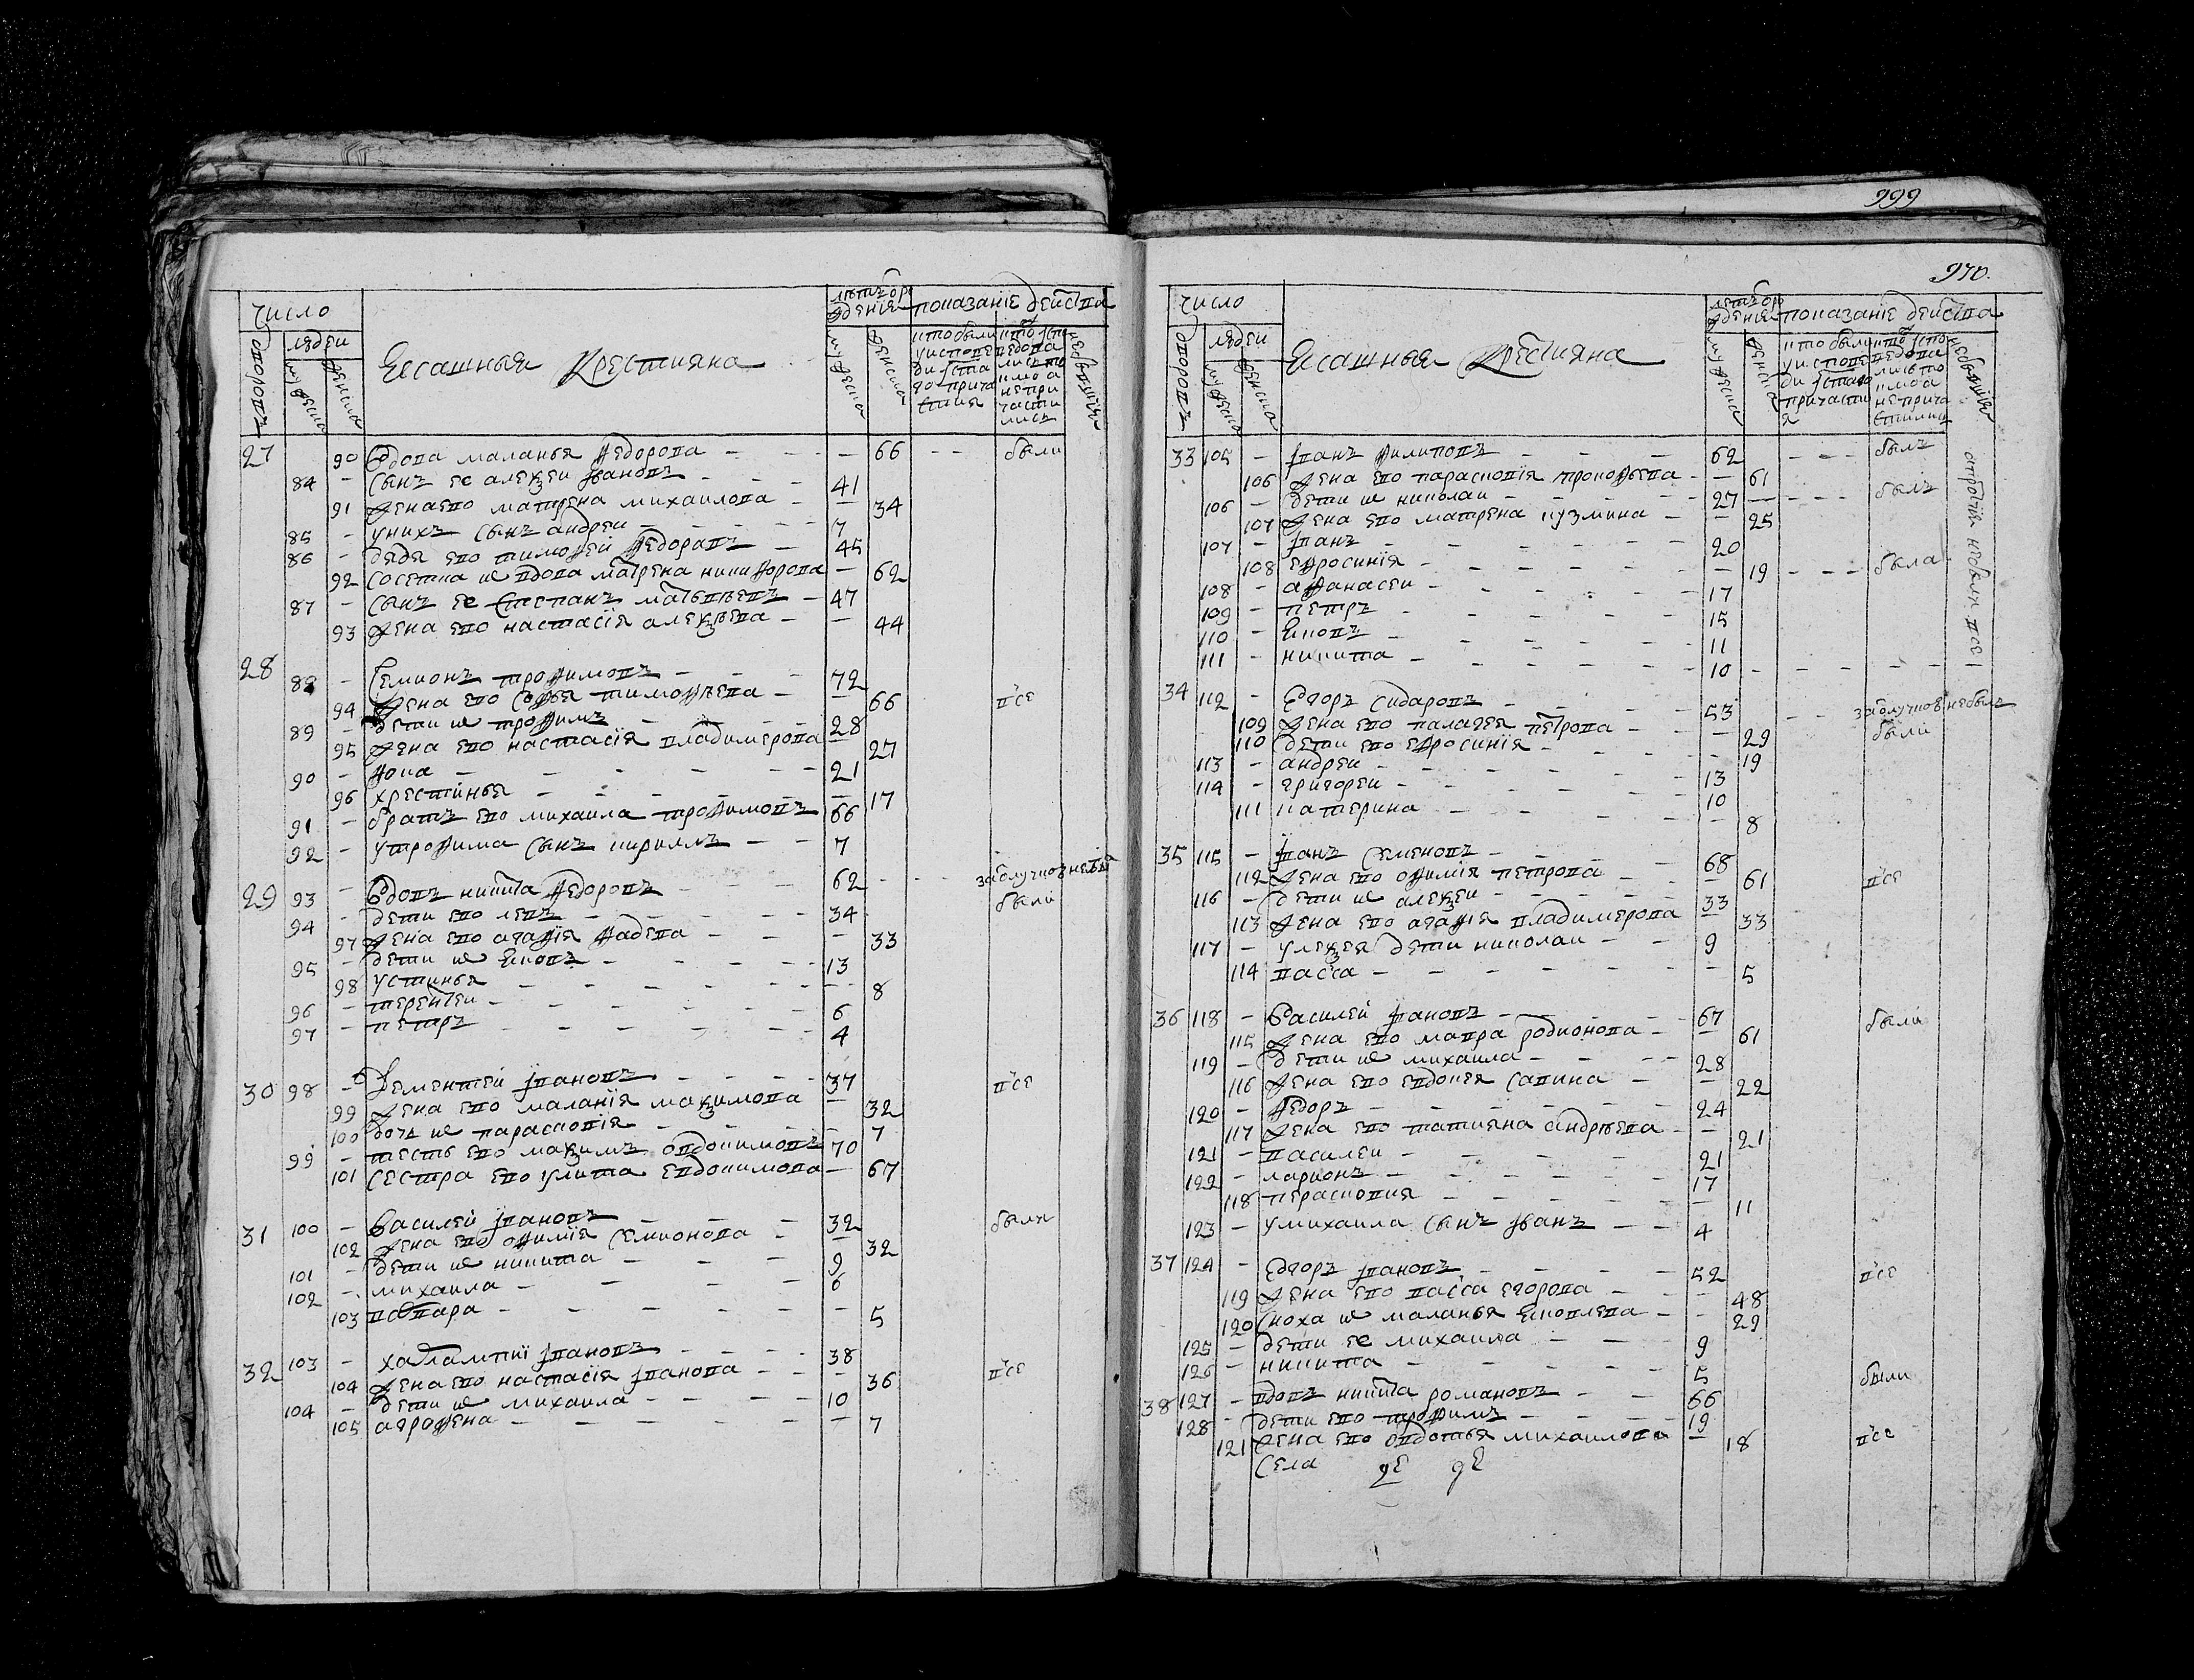 число
дворовъ
людеи
мужеска
женска
Ясашныя Крестияна
лѣтъ от рождения
мужеска
женска
показание действа
кто были у исповеди и святаго причастия
кто исповедались токмо а не причастились
не бывшия
27 90 Вдова маланья федорова - - - 66 - - были
84 - сынъ ее алексеи Иванопъ - - - 41
91 жена его матрена михаилова - - 34
85 - у нихъ сынъ андреи - - - 7
86 - дядя его тимофеи федоравъ - 45
92 сосетка их вдова матрена никифорова - 62
87 - сынъ ее степанъ матвѣевъ - 47
93 жена его настасия алексѣева - - 44
28 88 - Семионъ трофимовъ - - - 72
94 жена его софья тимофѣева - - 66 все
89 - дети их трофимъ - - 28
95 жена его настасия владимерова 27
90 - фока - - - - - 21
96 хрестинья - - - - - 17
91 - братъ его михаила трофимовъ 66
92 - у трофима сынъ кириллъ - - 7
29 93 - Вдовъ никита федоровъ - - - 62 - - - за отлучков небылъ
94 - дети его левъ - - - 34 были
97 жена его агафия фадева - - - 33
95 - дети их яковъ - - - 13
98 устинья - - - - - 8
96 - терентеи - - - - - 6
97 - петръ - - - - - 4
30 98 - Дементеи ивановъ - - - 37 все
99 жена его малания максимова - 32
100 дочь их парасковия - - - - 7
99 - тесть его максимъ овдокимовъ 70
101 сестра его улита евдокимова - 67
31 100 - Василеи ивановъ - - - 32 были
102 жена его офимия семионова - - 32
101 - дети их никита - - - 9
102 - михаила - - - - 6
103 варвара - - - - - - 5
32 103 - харлампии ивановъ - - - 38
104 жена его настасия иванова - - - 36 все
104 - дети их михаила - - - - 10
105 аграфена - - - - - - 7
999
970.
число
дворовъ
людеи
мужеска
женска
Ясашныя Крестияна
лѣтъ от рождения
мужеска
женска
показание действа
кто были у исповеди и святаго причастия
кто исповедались токмо а не причастились
не бывшия
33 105 - иванъ филиповъ - - - 62 - - - былъ
106 жена его парасковия прокофьева - - 61
106 - дети их николаи - - - - 27 - - - - былъ
107 жена его матрена кузмина - - 25
107 - иванъ - - - - - 20
108 ефросиния - - - - - - 19 - - - была
108 - афанасеи - - - - - 17
109 - петръ - - - - - 15
110 - яковъ - - - - - 11
111 - никита - - - - - 10 - - - - -
а протчия небыли все
34 112 - Егоръ сидаровъ - - - - 53 - - за отлучков небылъ
109 жена его палагея петрова - - - 29 были
110 дети его ефросиния - - - - 19
113 - андреи - - - - - 13
114 - григореи - - - - - 10
111 катерина - - - - - 8
35 115 - иванъ семеновъ - - - - 68
112 жена его офимия петрова - - - 61 все
116 - дети их алексеи - - - - 33
113 жена его агафия владимерова 33
117 - у лексея дети николаи - - 9
114 васса - - - - - - 5
36 118 - Василеи ивановъ - - - - 67 были
115 жена его мавра родионова - - 61
119 - дети их михаила - - - - 28
116 жена его евдокея савина - - 22
120 - федоръ - - - - - 24
117 жена его татияна андрѣева - - 21
121 - василеи - - - - - 21
122 - ларионъ - - - - - 17
118 перасковия - - - - - 11
123 - у михаила сынъ иванъ - - 4
37 124 - Егоръ ивановъ - - - - 52 все
119 жена его васса егорова - - - 48
120 сноха их маланья яковлева - - 29
125 - дети ее михаила - - - 9
126 - никита - - - - - 5
38 127 - вдовъ никита романовъ - - 66 были
128 - дети его трофимъ - - - - 19
121 жена его овдотья михаилова - 18 все
села